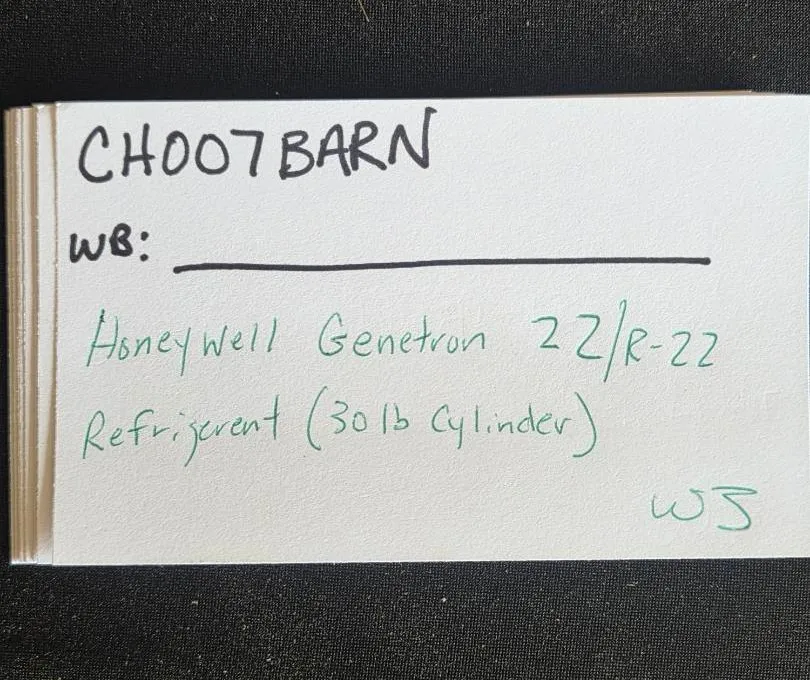 CH007BARN
WB:
Honeywell Genetron 22/R-22
Refrigerent (30 lb Cylinder)
WJ